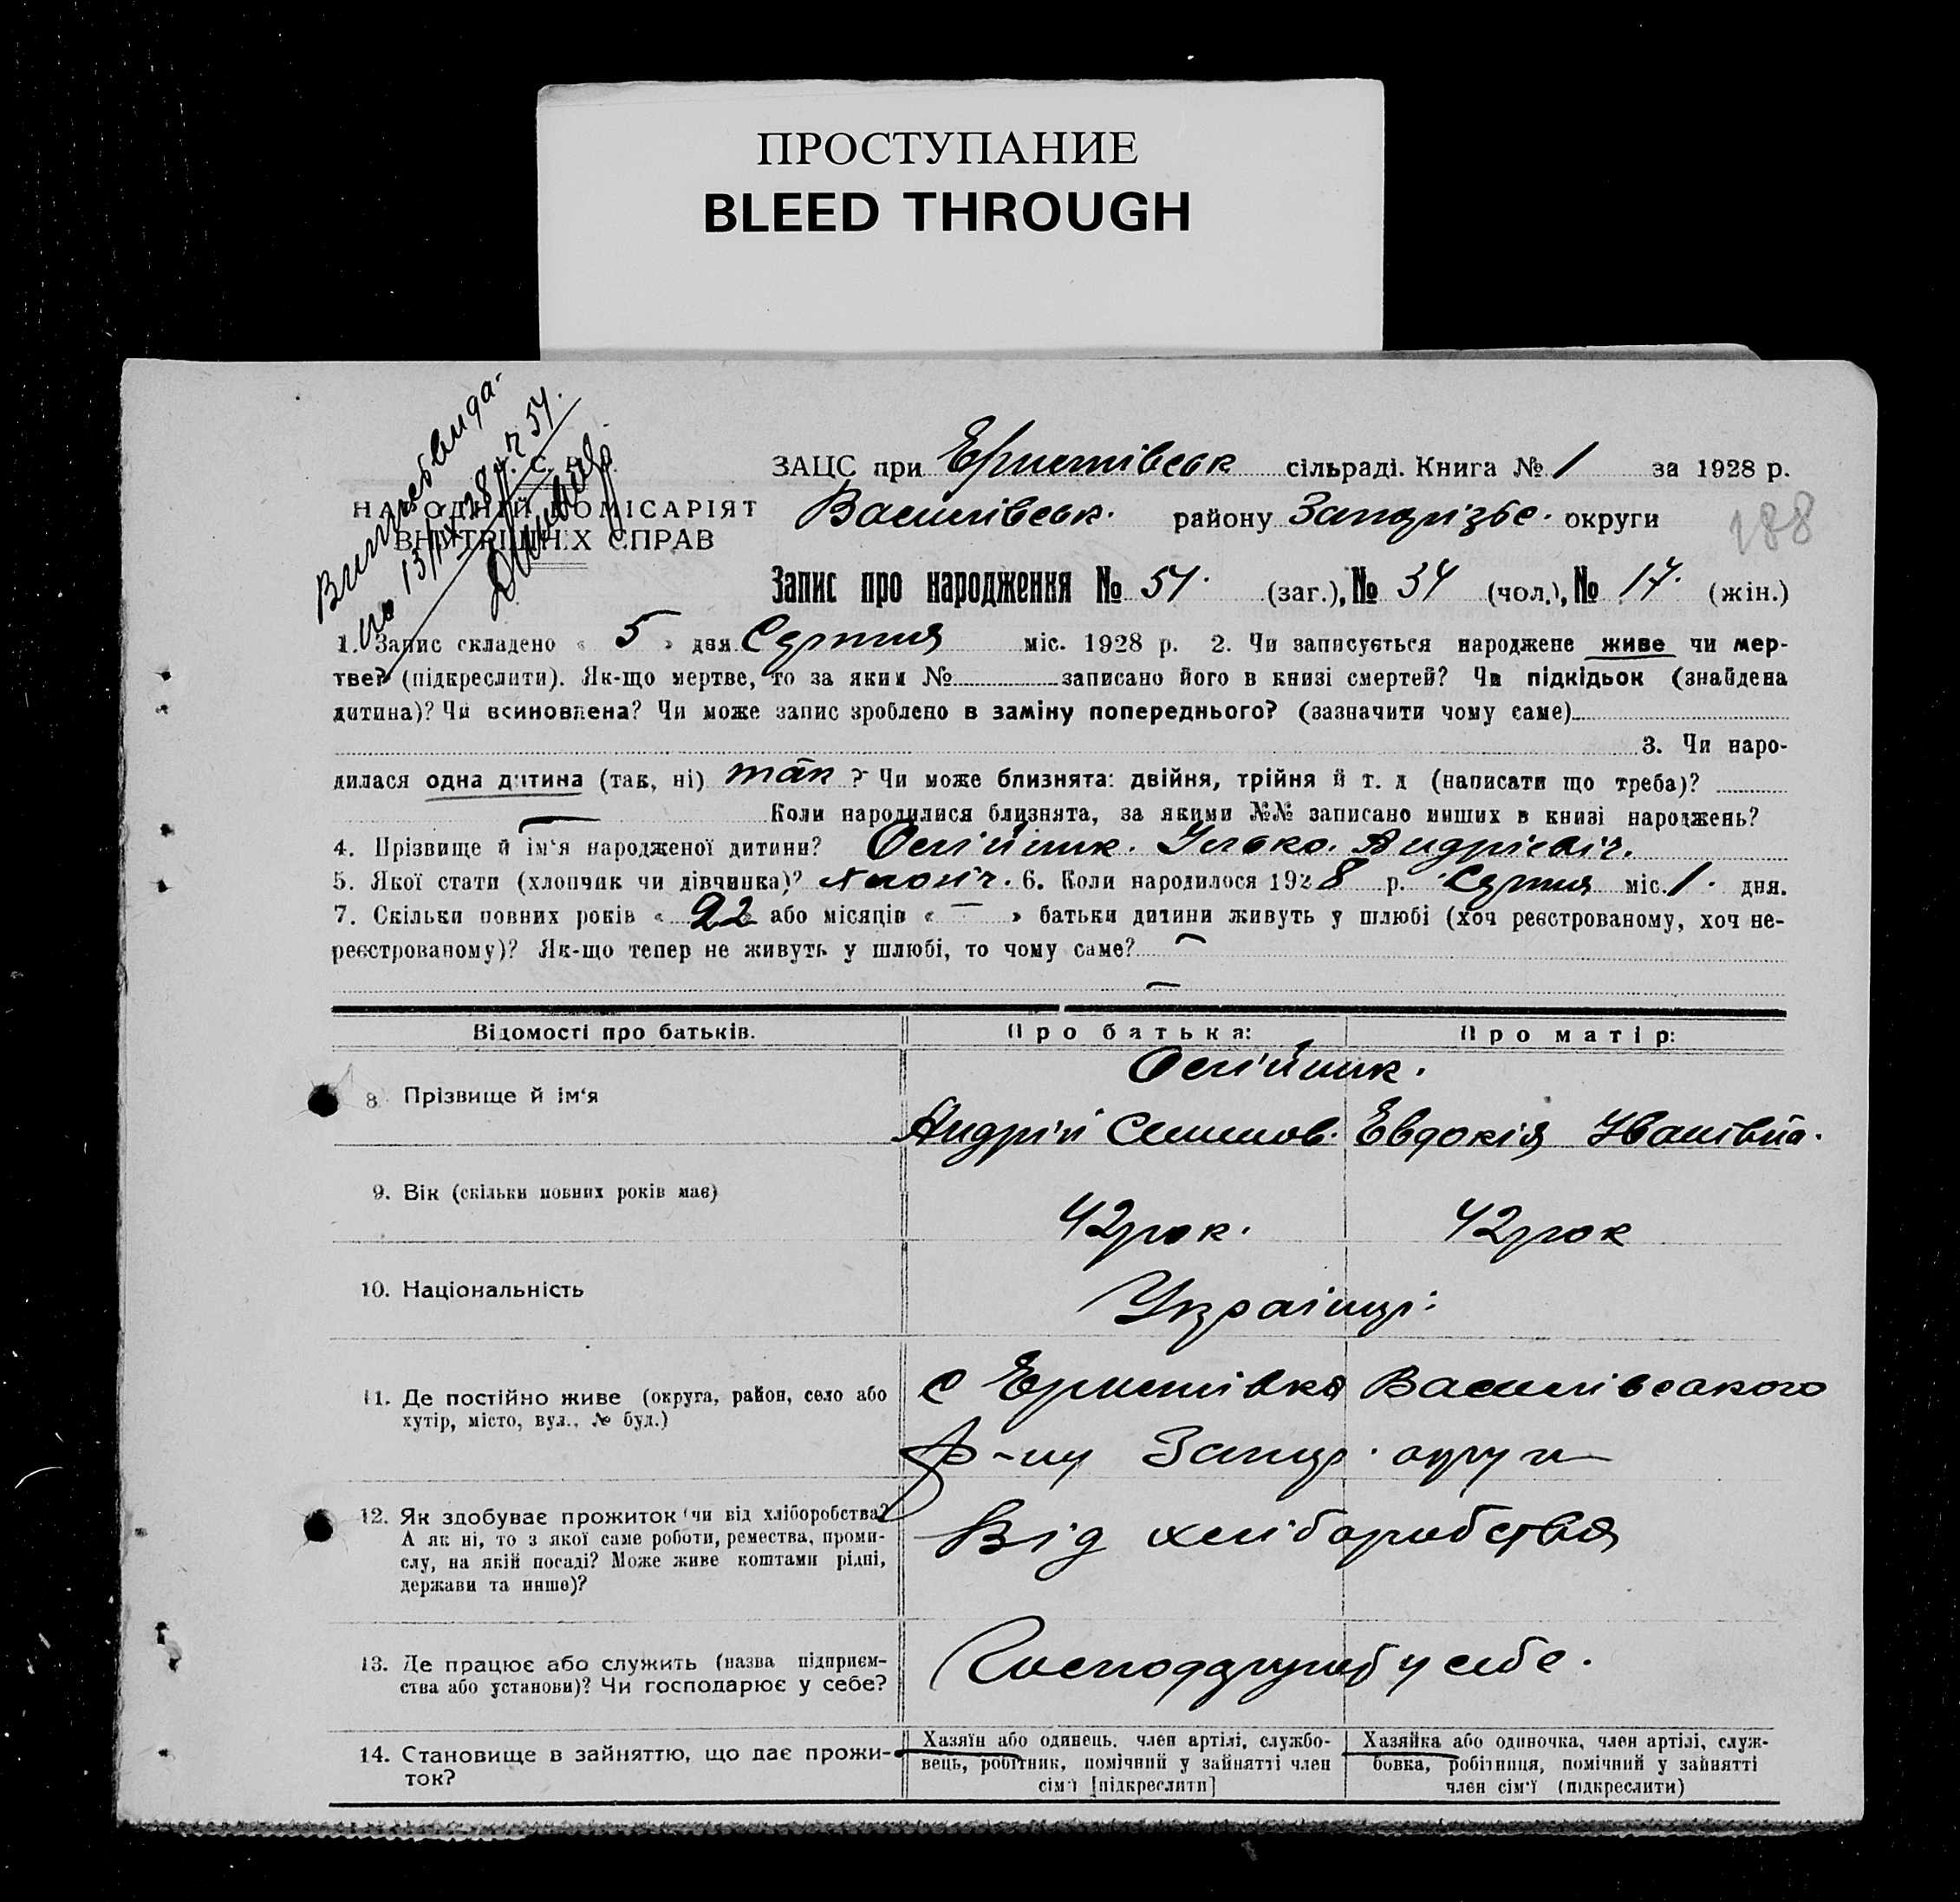 ПРОСТУПАНИЕ
BLEED THROUGH
ЗАЦС при Ернстівськ сільраді. Книга № 1 за 1928 р.
НАРОДНІЙ КОМІСАРІЯТ
Василівськ. району Запорізьс. округи
ВНУТРІШНІХ СПРАВ
188
Запис про народження № 51. (заг.), № 34 (чол.), № 17. (жін.)
1. Запис складено « 5 » дня Серпня міс. 1928 р. 2. Чи записується народжене живе чи мер-
тве? (підкреслити). Як-що мертве, то за яким № записано його в книзі смертей? Чи підкідьок (знайдена
дитина)? Чи всиновлена? Чи може запис зроблено в заміну попереднього? (зазначити чому саме)
3. Чи наро-
дилася одна дитина (так, ні) так ? Чи може близнята: двійня, трійня й т. д (написати що треба)?
Коли народилися близнята, за якими №№ записано инших в книзі народжень?
4. Прізвище й ім'я народженої дитини? Олійник. Ілько. Андрієвіч.
5. Якої стати (хлопчик чи дівчинка)? хлопіч. 6. Коли народилося 1928 р. Серпня міс. 1. дня.
7. Скільки повних років « 22 » або місяців « — » батьки дитини живуть у шлюбі (хоч реєстрованому, хоч не-
реєстрованому)? Як-що тепер не живуть у шлюбі, то чому саме? —
—
Відомості про батьків. Про батька: Про матір:
Олійник.
8 Прізвище й ім'я
Андрій Семенов. Евдокія Іванівна.
9. Вік (скільки повних років має)
42 рок. 42 рок
10. Національність
Українці.
11. Де постійно живе (округа, район, село або
хутір, місто, вул., № буд.)
с Ернстівка Василівського
р-ну Запор. округи
12. Як здобуває прожиток (чи від хліборобства?
А як ні, то з якої саме роботи, ремества, проми-
слу, на якій посаді? Може живе коштами рідні,
держави та инше)?
Від хліборобства
13. Де працює або служить (назва підприєм-
ства або установи)? Чи господарює у себе?
у себе.
14. Становище в зайняттю, що дає прожи-
ток?
Хазяїн або одинець. член артілі, службо-
вець, робітник, помічний у зайнятті член
сім'ї [підкреслити]
Хазяйка або одиночка, член артілі, служ-
бовка, робітниця, помічний у зайнятті
член сім'ї (підкреслити)